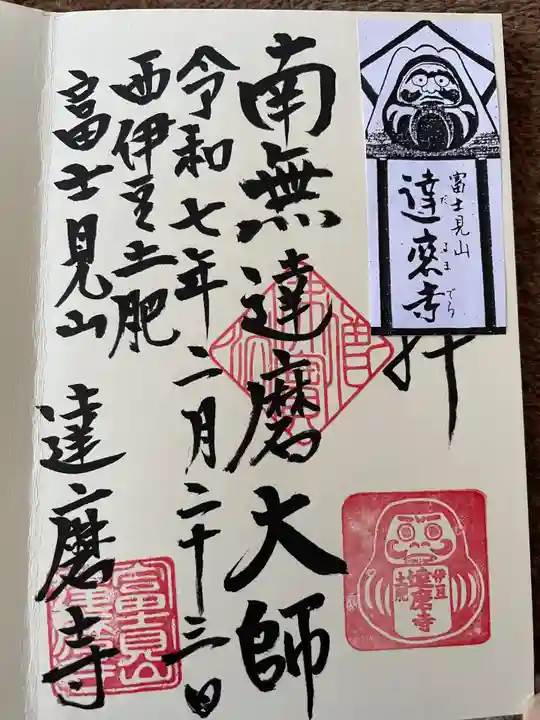 富士見山
達磨寺
だるまでら
拝
南無達磨大師
令和七年二月二十三日
西伊豆土肥
富士見山 達磨寺
伊豆
土肥
達磨寺
富士見山
達磨寺